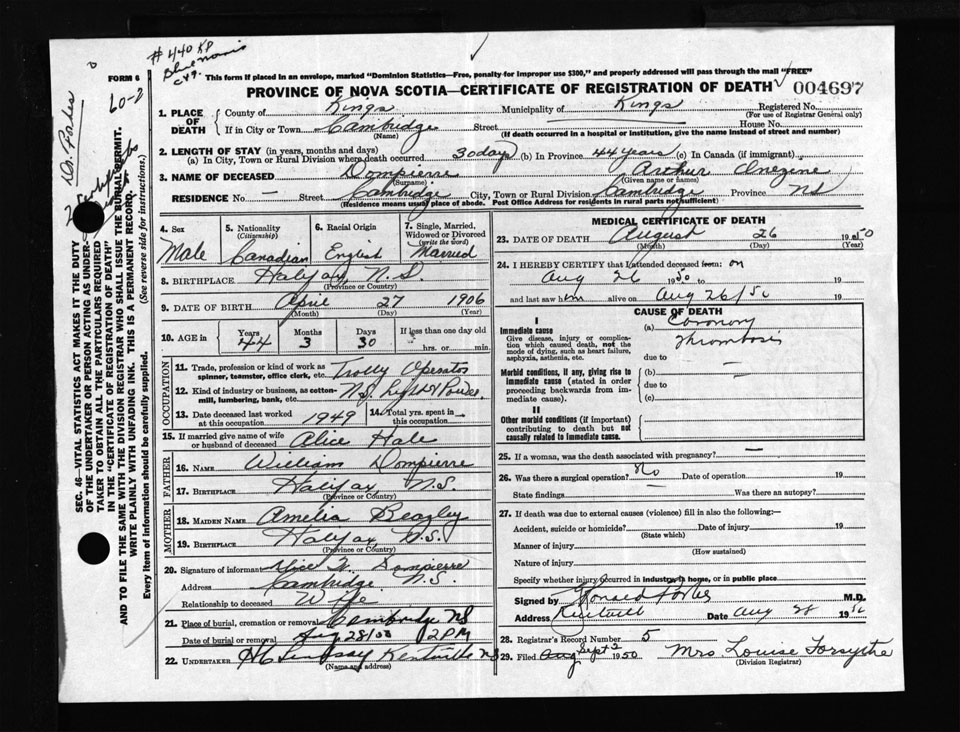 # 440 KP
FORM 6
60-2
This form if placed in an envelope, marked "Dominion Statistics—Free, penalty for improper use $300," and properly addressed will pass through the mail "FREE"
PROVINCE OF NOVA SCOTIA—CERTIFICATE OF REGISTRATION OF DEATH 004697
1. PLACE OF DEATH County of Kings Municipality of Kings Registered No.
(For use of Registrar General only)
If in City or Town Cambridge Street House No.
(Name) (If death occurred in a hospital or institution, give the name instead of street and number)
2. LENGTH OF STAY (in years, months and days)
(a) In City, Town or Rural Division where death occurred 30 days (b) In Province 44 years (c) In Canada (if immigrant)
3. NAME OF DECEASED Dompierre Arthur
(Surname) (Given name or names)
RESIDENCE No — Street Cambridge City, Town or Rural Division Cambridge Province NS
(Residence means usual place of abode. Post Office Address for residents in rural parts not sufficient)
4. Sex
Male
5. Nationality
(Citizenship)
Canadian
6. Racial Origin
English
7. Single, Married, Widowed or Divorced
(write the word)
Married
8. BIRTHPLACE Halifax N.S
(Province or Country)
9. DATE OF BIRTH April 27 1906
(Month) (Day) (Year)
10. AGE in Years Months Days If less than one day old
44 3 30 hrs. or min.
OCCUPATION
11. Trade, profession or kind of work as spinner, teamster, office clerk, etc. Trolly Operator
12. Kind of industry or business, as cotton-mill, lumbering, bank, etc. N.S. Light & Power
13. Date deceased last worked at this occupation 1949 14. Total yrs. spent in this occupation
15. If married give name of wife or husband of deceased Alice Hale
FATHER
16. NAME William Dompierre
17. BIRTHPLACE Halifax N.S.
(Province or Country)
MOTHER
18. MAIDEN NAME Amelia Beazley
19. BIRTHPLACE Halifax, N.S.
(Province or Country)
20. Signature of informant Alice W. Dompierre
Address Cambridge N.S.
Relationship to deceased Wife
21. Place of burial, cremation or removal Cambridge NS
Date of burial or removal Aug 28/50 2 PM
22. UNDERTAKER H C Lindsay Kentville NS
(Name and address)
MEDICAL CERTIFICATE OF DEATH
23. DATE OF DEATH August 26 1950
(Month) (Day) (Year)
24. I HEREBY CERTIFY that I attended deceased from: on
Aug 26 1950 to 19
and last saw him alive on Aug 26/50 19
CAUSE OF DEATH
I
Immediate cause (a) Coronary
Give disease, injury or complication which caused death, not the mode of dying, such as heart failure, asphyxia, asthenia, etc.
Thrombosis
due to —
Morbid conditions, if any, giving rise to immediate cause (stated in order proceeding backwards from immediate cause).
(b)
due to —
(c)
II
Other morbid conditions (if important) contributing to death but not causally related to immediate cause.
25. If a woman, was the death associated with pregnancy? —
26. Was there a surgical operation? No Date of operation 19
State findings Was there an autopsy?
27. If death was due to external causes (violence) fill in also the following:—
Accident, suicide or homicide? Date of injury 19
(State which)
Manner of injury
(How sustained)
Nature of injury
Specify whether injury occurred in industry, in home, or in public place
Signed by Donald Forbes M.D.
Address Kentville Date Aug 28 1950
28. Registrar's Record Number 5
29. Filed Aug Sept 2 1950 Mrs. Louise Forsythe
(Division Registrar)
SEC. 46—VITAL STATISTICS ACT MAKES IT THE DUTY
OF THE UNDERTAKER OR PERSON ACTING AS UNDER-
TAKER TO OBTAIN ALL THE PARTICULARS REQUIRED
IN THE "CERTIFICATE OF REGISTRATION OF DEATH"
AND TO FILE THE SAME WITH THE DIVISION REGISTRAR WHO SHALL ISSUE THE BURIAL PERMIT.
WRITE PLAINLY WITH UNFADING INK. THIS IS A PERMANENT RECORD.
Every item of information should be carefully supplied. (See reverse side for instructions.)